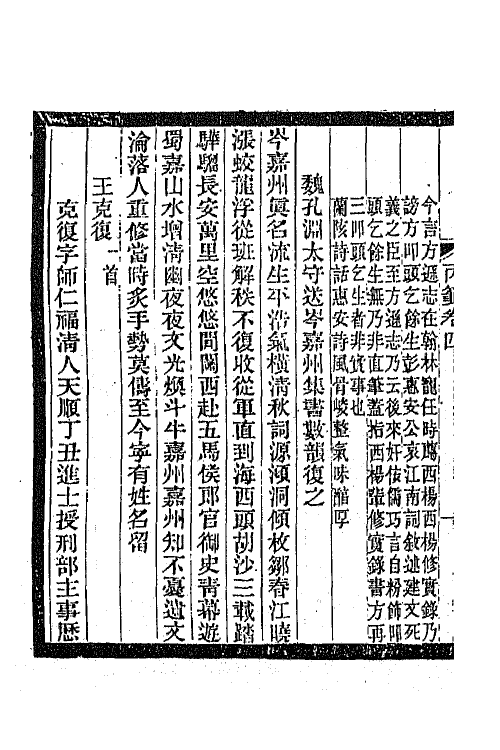 丙籤卷四
今言方遜志在翰林寵任時薦西楊西楊修實錄乃
謗方叩頭乞餘生彭惠安公哀江南詞敘述建文死
義之臣至方遜志乃云後來奸佞儒巧言自粉飾叩
頭乞餘生無乃非直筆蓋指西楊輩修實錄書方再
三叩頭乞生者非實事也
蘭陔詩話惠安詩風骨峻整氣味醇厚
魏孔淵太守送岑嘉州集書數韻復之
岑嘉州眞名流生平浩氣橫清秋詞源澒洞傾枚鄒春江曉
漲蛟龍浮從班解秩不復收從軍直到海西頭胡沙三載踏
驊騮長安萬里空悠悠間關西赴五馬侯郎官御史靑幕遊
蜀嘉山水增清幽夜夜文光煥斗牛嘉州嘉州知不憂遺文
淪落人重修當時炙手勢莫儔至今寧有姓名留
王克復一首
克復字師仁福清人天順丁丑進士授刑部主事歷